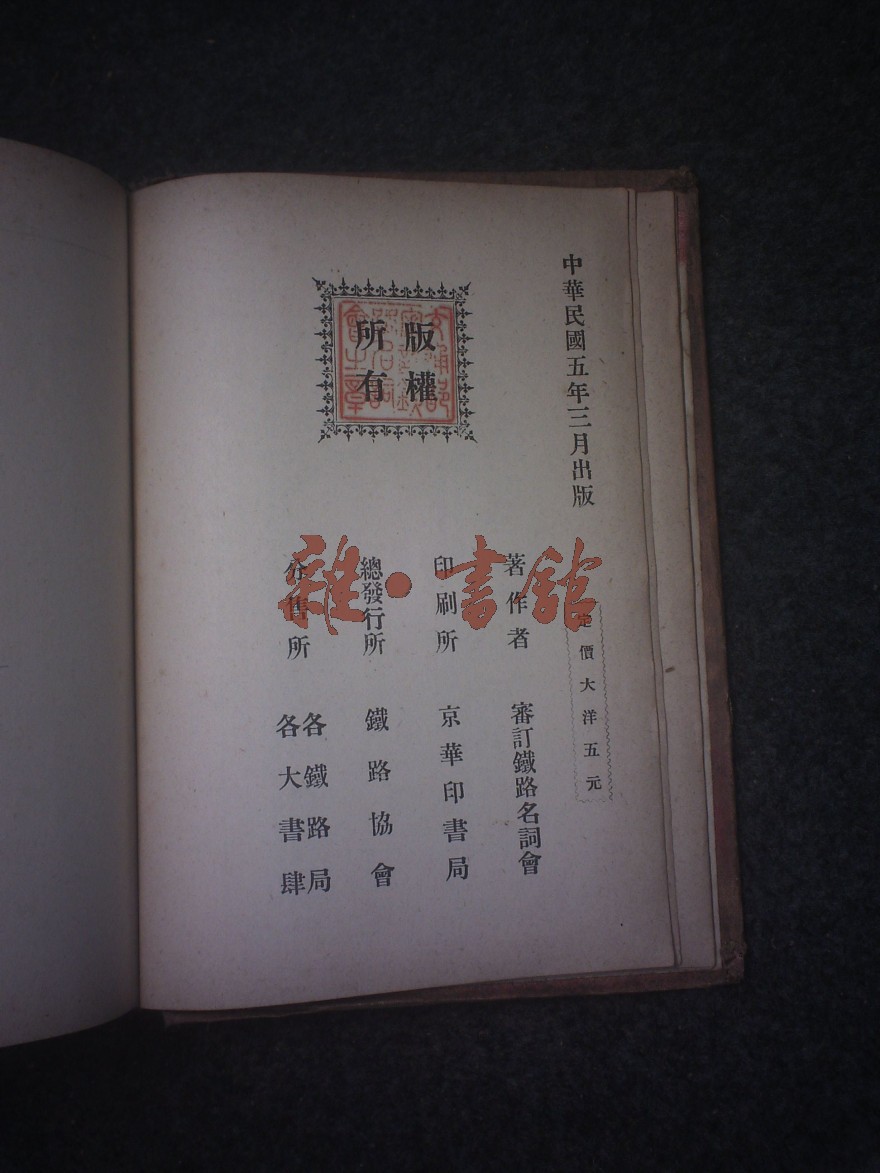 中華民國五年三月出版
定價大洋五元
著作者 審訂鐵路名詞會
印刷所 京華印書局
總發行所 鐵路協會
分售所 各鐵路局
各大書肆
版權
所有
雜·書館